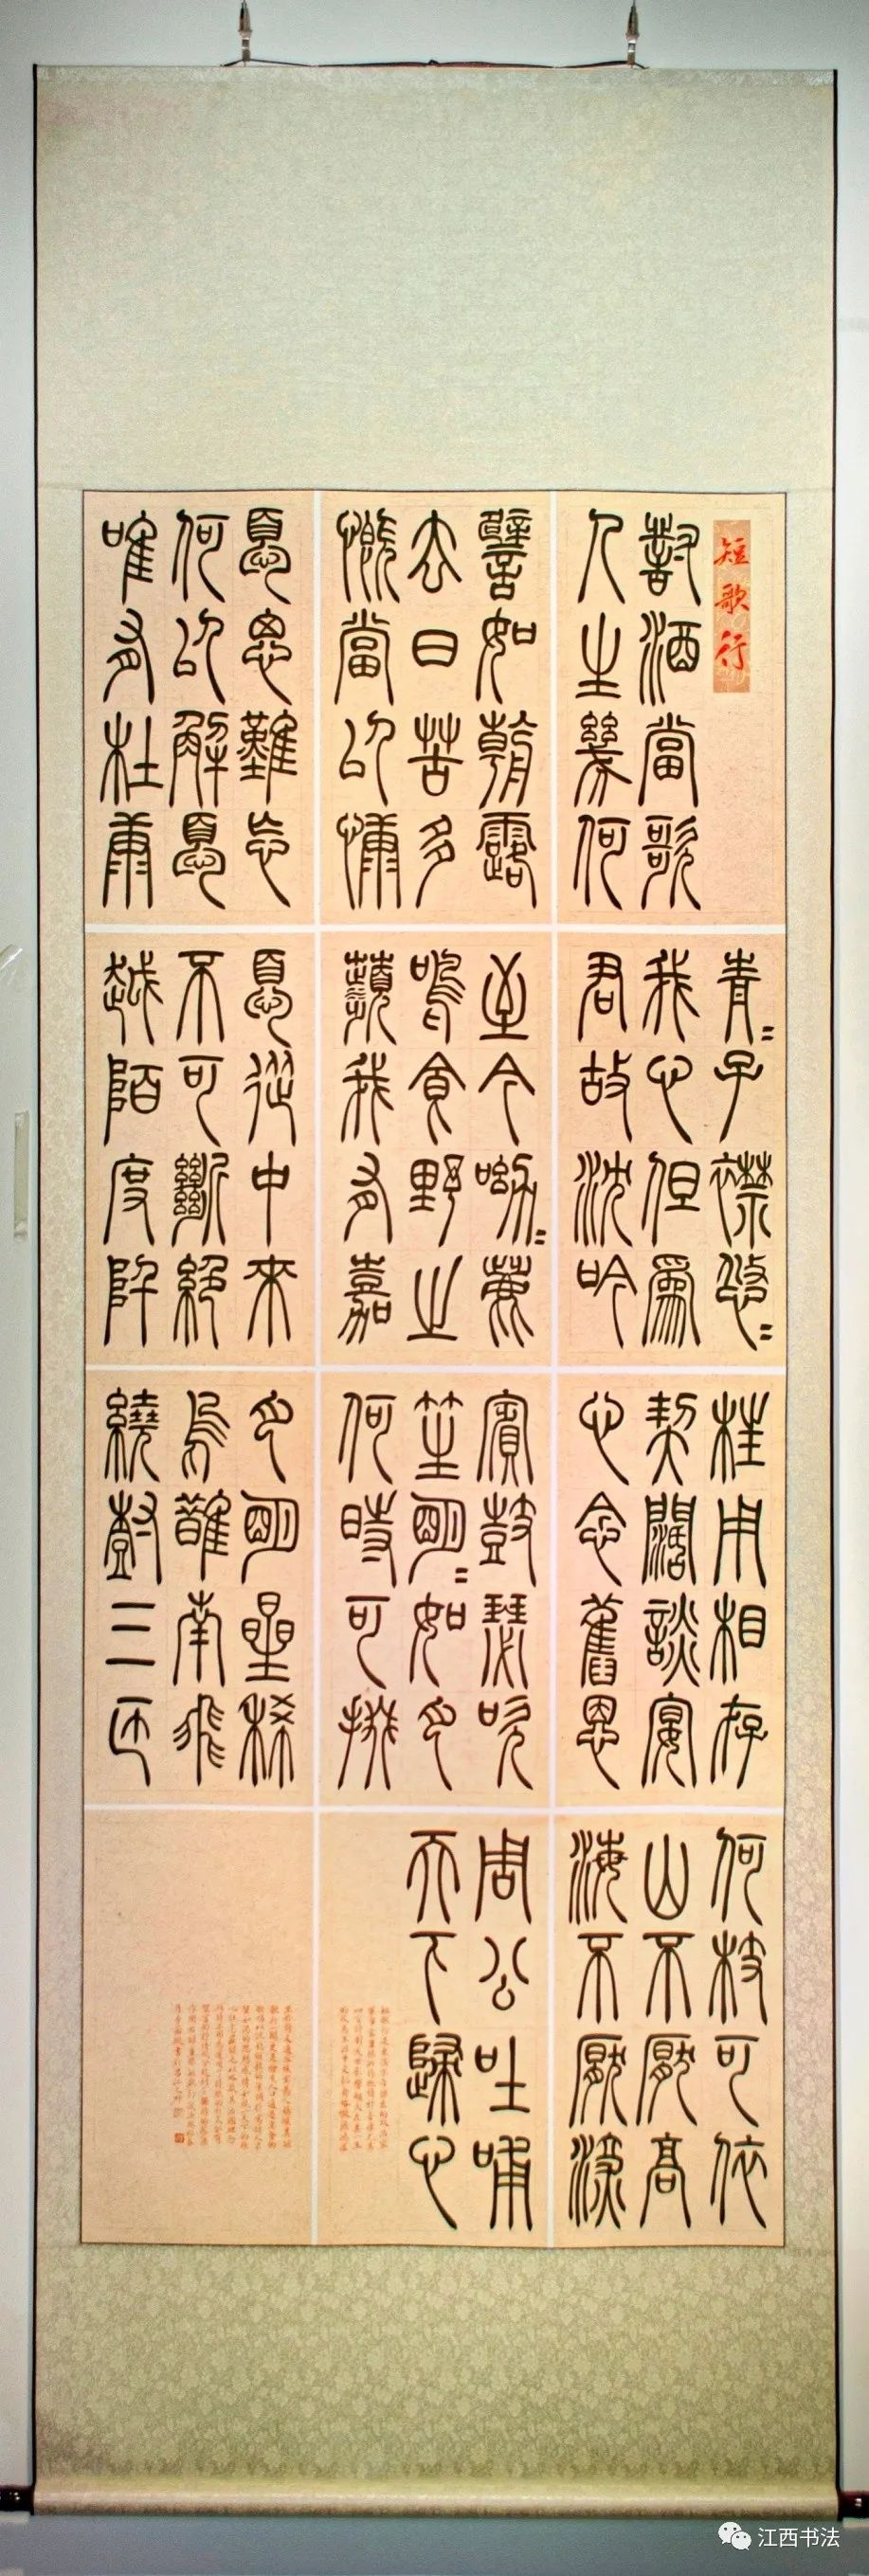 短歌行
對酒當歌
人生幾何
譬如朝露
去日苦多
慨當以慷
憂思難忘
何以解憂
唯有杜康
青=子襟悠=
我心但爲
君故沈吟
至今呦=鹿
鳴食野之
蘋我有嘉
憂從中來
不可斷絕
越陌度阡
枉用相存
契闊談宴
心念舊恩
賓鼓瑟吹
笙明=如月
何時可掇
月明星稀
烏鵲南飛
繞樹三匝
何枝可依
山不厭高
海不厭深
周公吐哺
天下歸心
江西书法